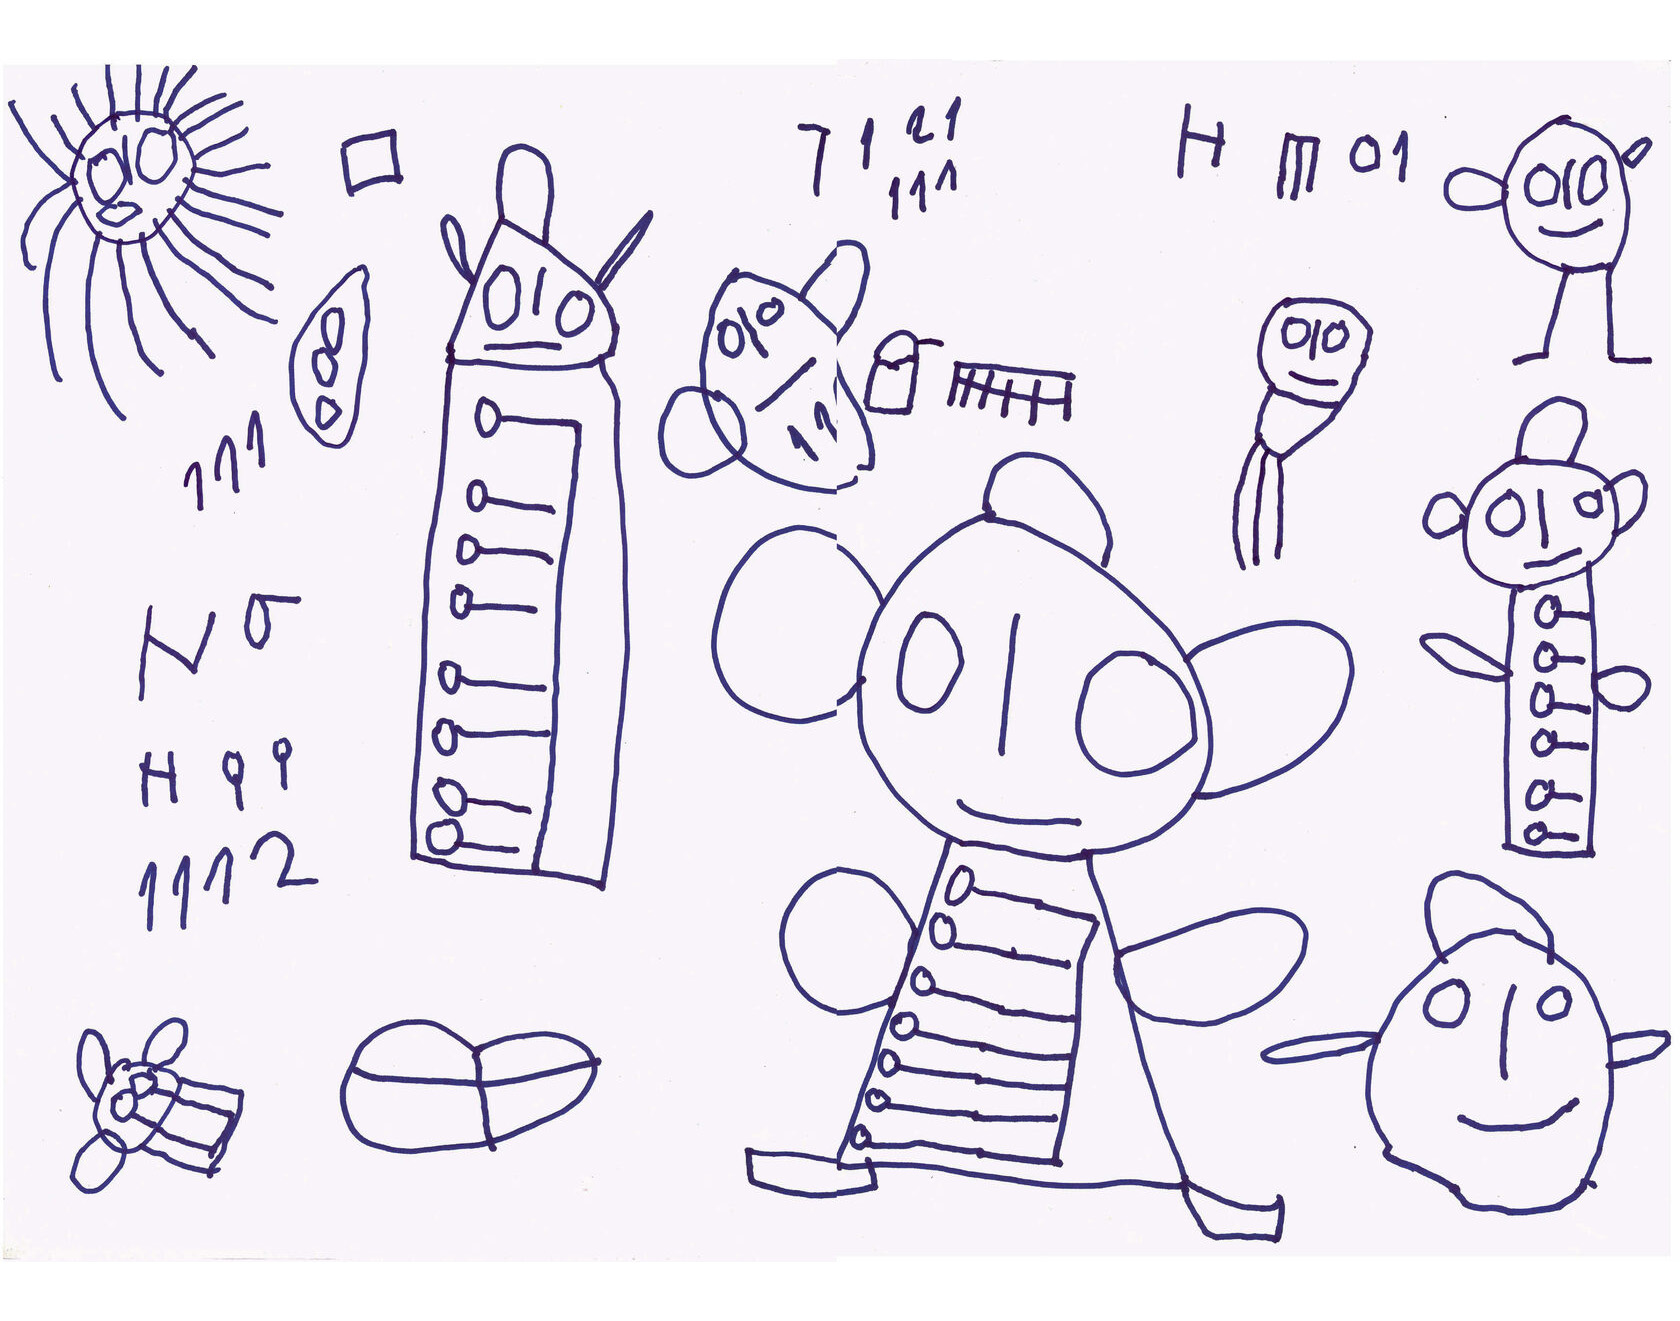 7 1 21
111
H m 01
111
N σ
H
1112